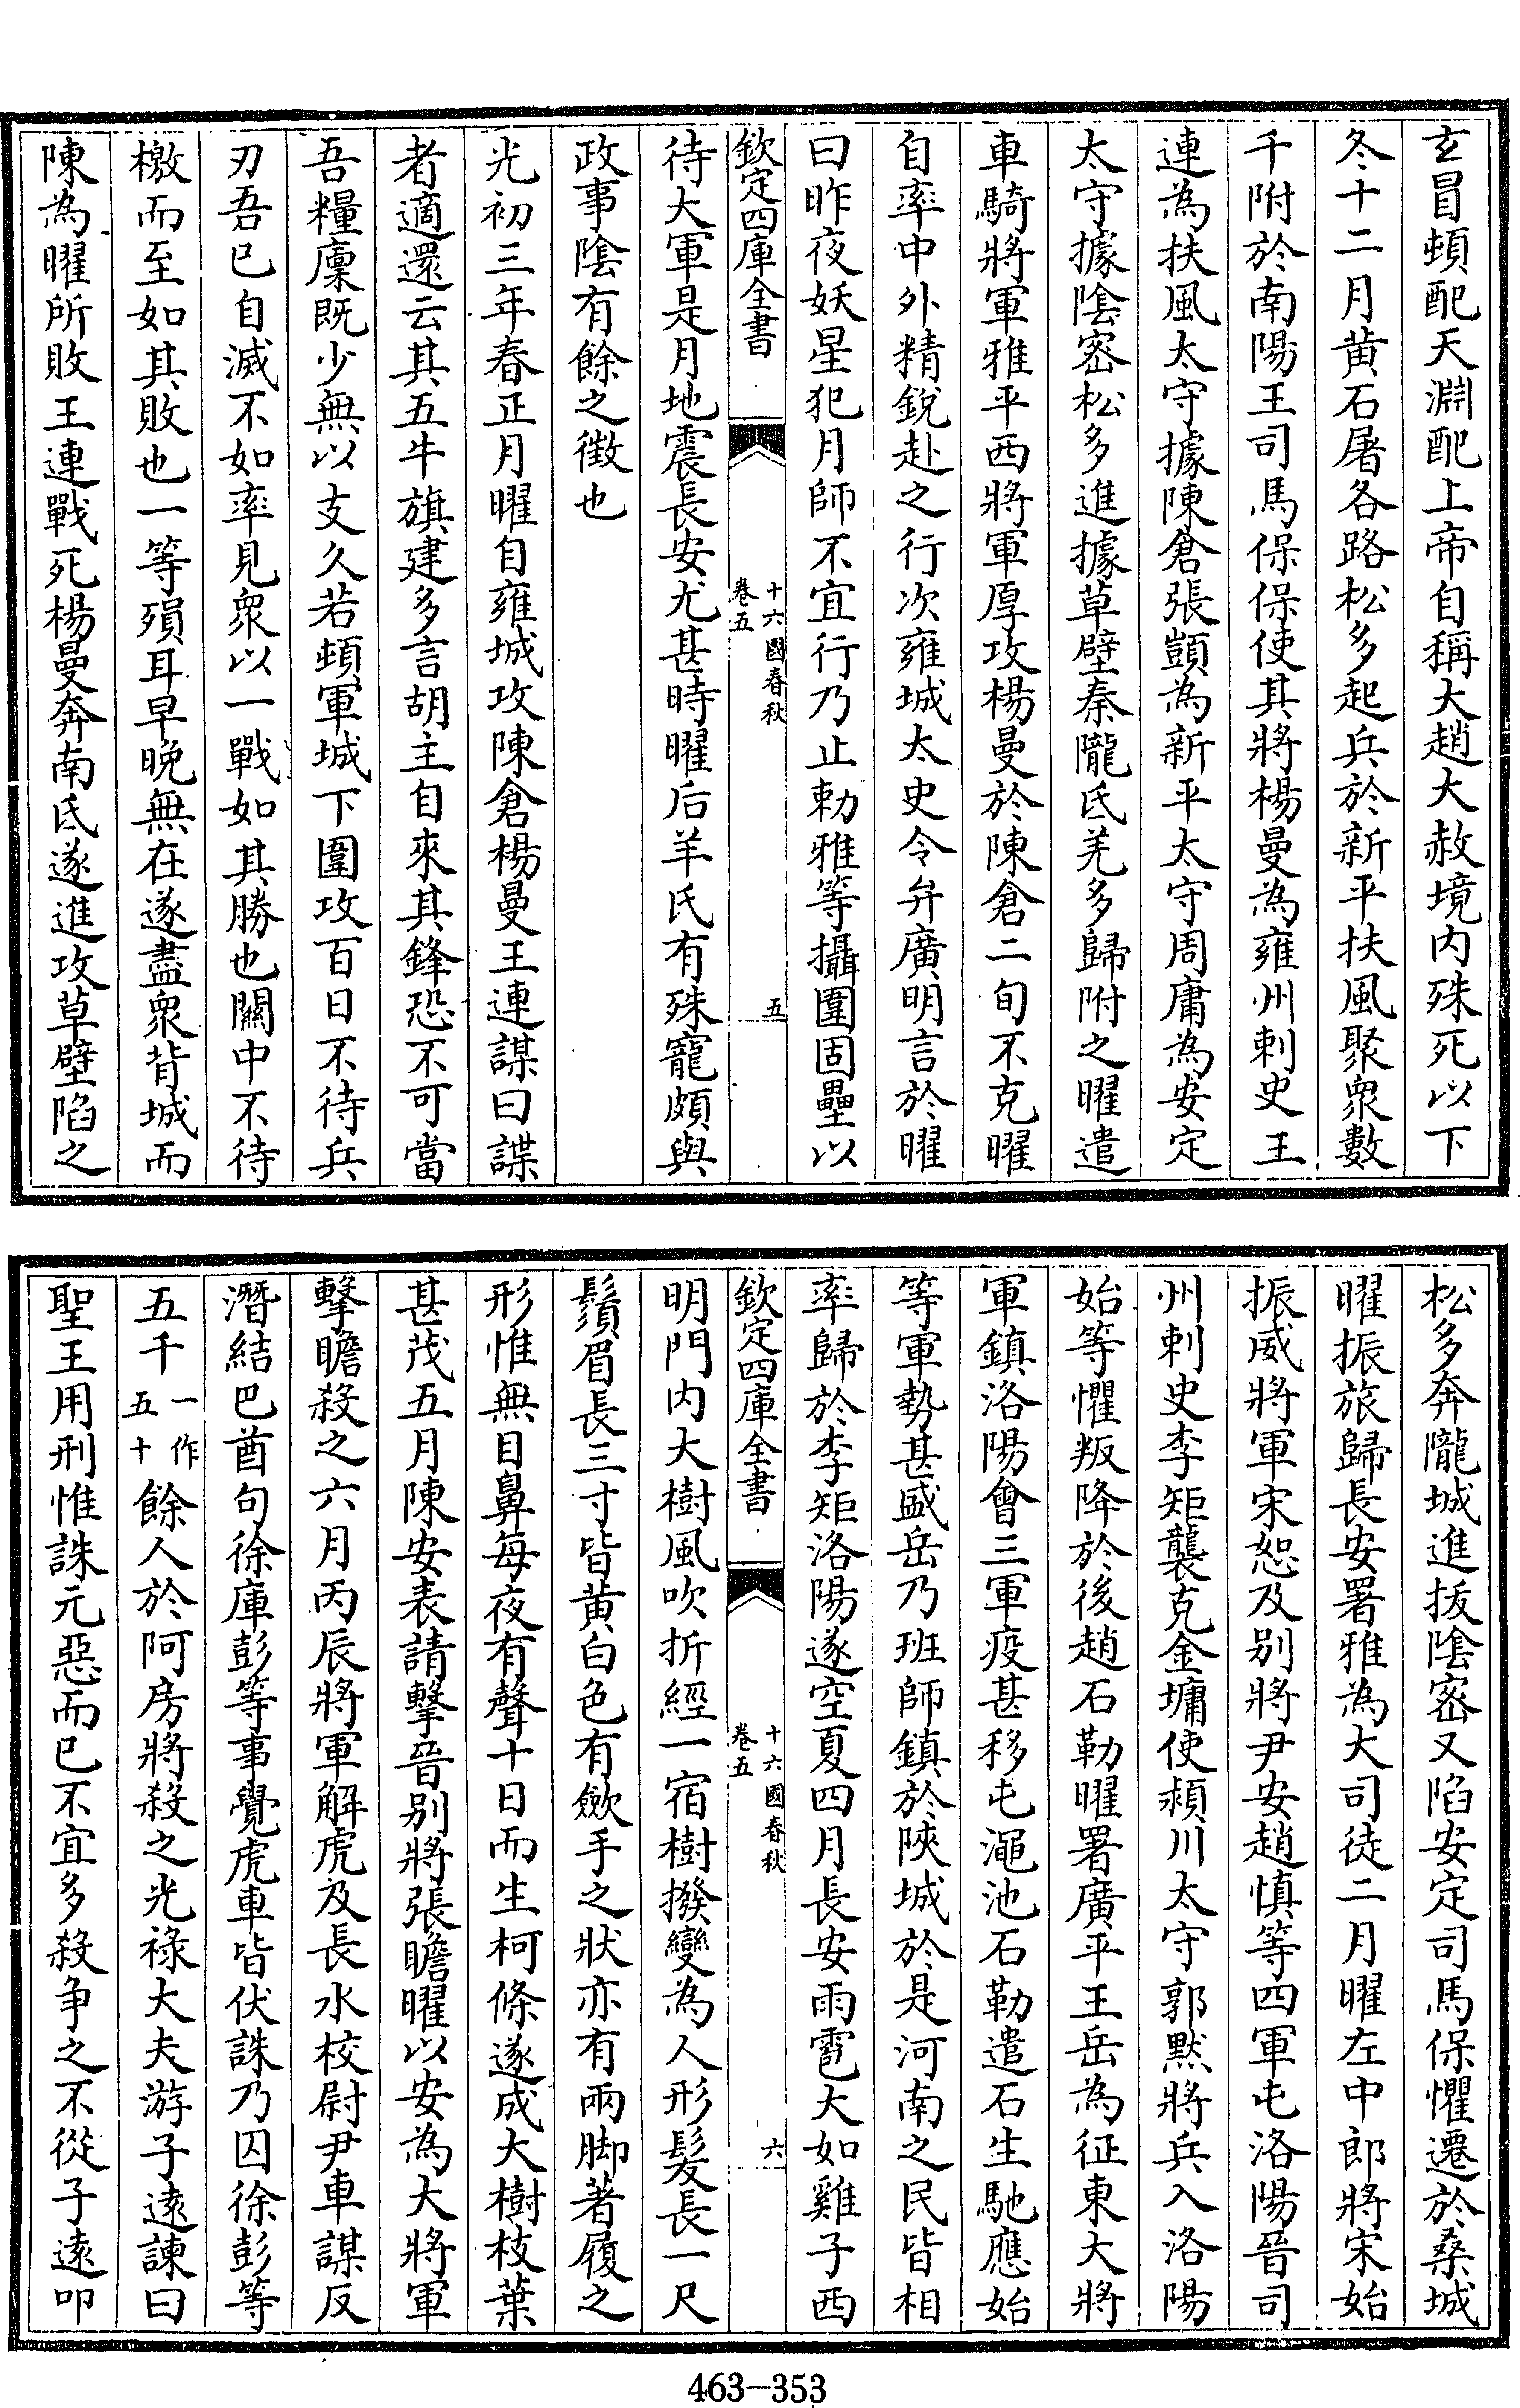 玄冒頓配天淵配上帝自稱大趙大赦境内殊死以下
冬十二月黄石屠各路松多起兵於新平扶風聚衆數
千附於南陽王司馬保保使其將楊曼為雍州刺史王
連為扶風太守據陳倉張顗為新平太守周庸為安定
太守據陰宻松多進據草壁秦隴氐羌多歸附之曜遣
車騎將軍雅平西將軍厚攻楊曼於陳倉二旬不克曜
自率中外精鋭赴之行次雍城太史令弁廣明言於曜
曰昨夜妖星犯月師不宜行乃止勅雅等攝圍固壘以
欽定四庫全書
十六國春秋
卷五
五
待大軍是月地震長安尤甚時曜后羊氏有殊寵頗與
政事陰有餘之徴也
光初三年春正月曜自雍城攻陳倉楊曼王連謀曰諜
者適還云其五牛旗建多言胡主自來其鋒恐不可當
吾糧廩既少無以支久若頓軍城下圍攻百日不待兵
刃吾已自滅不如率見衆以一戰如其勝也關中不待
檄而至如其敗也一等殞耳早晚無在遂盡衆背城而
陳為曜所敗王連戰死楊曼奔南氐遂進攻草壁陷之
松多奔隴城進拔陰宻又陷安定司馬保懼遷於桑城
曜振旅歸長安署雅為大司徒二月曜左中郎將宋始
振威將軍宋恕及别將尹安趙慎等四軍屯洛陽晉司
州刺史李矩襲克金墉使潁川太守郭黙將兵入洛陽
始等懼叛降於後趙石勒曜署廣平王岳為征東大將
軍鎮洛陽會三軍疫甚移屯澠池石勒遣石生馳應始
等軍勢甚盛岳乃班師鎮於陜城於是河南之民皆相
率歸於李矩洛陽遂空夏四月長安雨雹大如雞子西
欽定四庫全書
十六國春秋
卷五
六
明門内大樹風吹折經一宿樹撥變為人形髮長一尺
鬚眉長三寸皆黄白色有歛手之狀亦有兩脚著履之
形惟無目鼻每夜有聲十日而生柯條遂成大樹枝葉
甚茂五月陳安表請擊晉别將張瞻曜以安為大將軍
擊瞻殺之六月丙辰將軍解虎及長水校尉尹車謀反
潛結巴酋句徐庫彭等事覺虎車皆伏誅乃囚徐彭等
五千一作五十餘人於阿房將殺之光祿大夫游子遠諫曰
聖王用刑惟誅元惡而已不宜多殺争之不從子遠叩
463-353